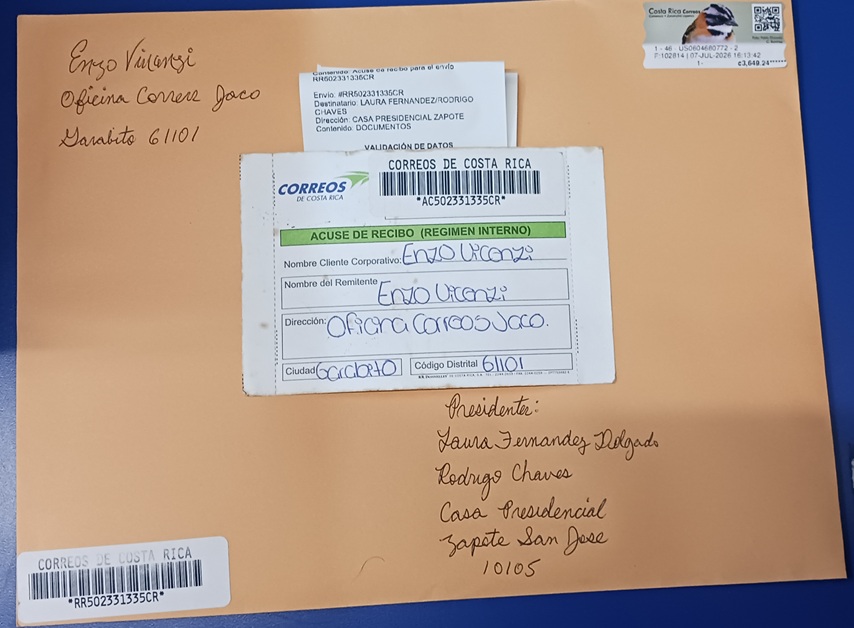 Enzo Vicenzi
Oficina Correos Jaco
Garabito 61101
Costa Rica Correos
1 - 46 - US0604680772 - 2
F:102814 | 07-JUL-2026 16:13:42
1-
¢3,649.24
Contenido: Acuse de recibo para el envío
RR502331335CR
Envío: #RR502331335CR
Destinatario: LAURA FERNANDEZ/RODRIGO
CHAVES
Dirección: CASA PRESIDENCIAL ZAPOTE
Contenido: DOCUMENTOS
VALIDACIÓN DE DATOS
CORREOS
DE COSTA RICA
CORREOS DE COSTA RICA
*AC502331335CR*
ACUSE DE RECIBO (REGIMEN INTERNO)
Nombre Cliente Corporativo: Enzo Vicenzi
Nombre del Remitente Enzo Vicenzi
Dirección: Oficina Correos Jaco.
Ciudad Garabito Código Distrital 61101
Presidente:
Laura Fernandez Delgado
Rodrigo Chaves
Casa Presidencial
Zapote San Jose
10105
CORREOS DE COSTA RICA
*RR502331335CR*